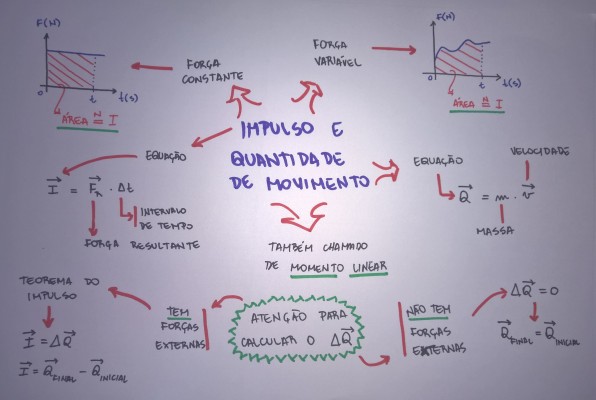 F(N)
0
t
t(s)
ÁREA N= I
FORÇA
CONSTANTE
FORÇA
VARIÁVEL
F(N)
0
t
t(s)
ÁREA N= I
IMPULSO E
QUANTIDADE
DE MOVIMENTO
EQUAÇÃO
I = FR . Δt
INTERVALO
DE TEMPO
FORÇA RESULTANTE
EQUAÇÃO
VELOCIDADE
Q = m . v
MASSA
TAMBÉM CHAMADO
DE MOMENTO LINEAR
TEOREMA DO
IMPULSO
I = ΔQ
I = QFINAL - QINICIAL
TEM
FORÇAS
EXTERNAS
ATENÇÃO PARA
CALCULAR O ΔQ
NÃO TEM
FORÇAS
EXTERNAS
ΔQ = 0
QFINAL = QINICIAL